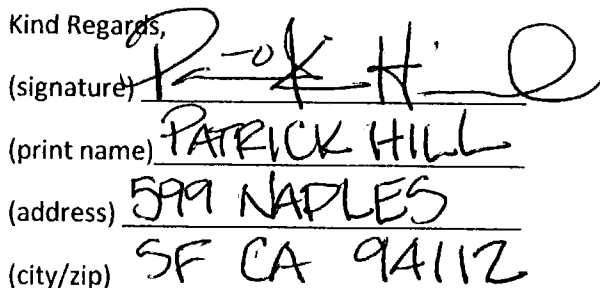 Kind Regards,
(signature) Patrick Hill
(print name) PATRICK HILL
(address) 599 NAPLES
(city/zip) SF CA 94112